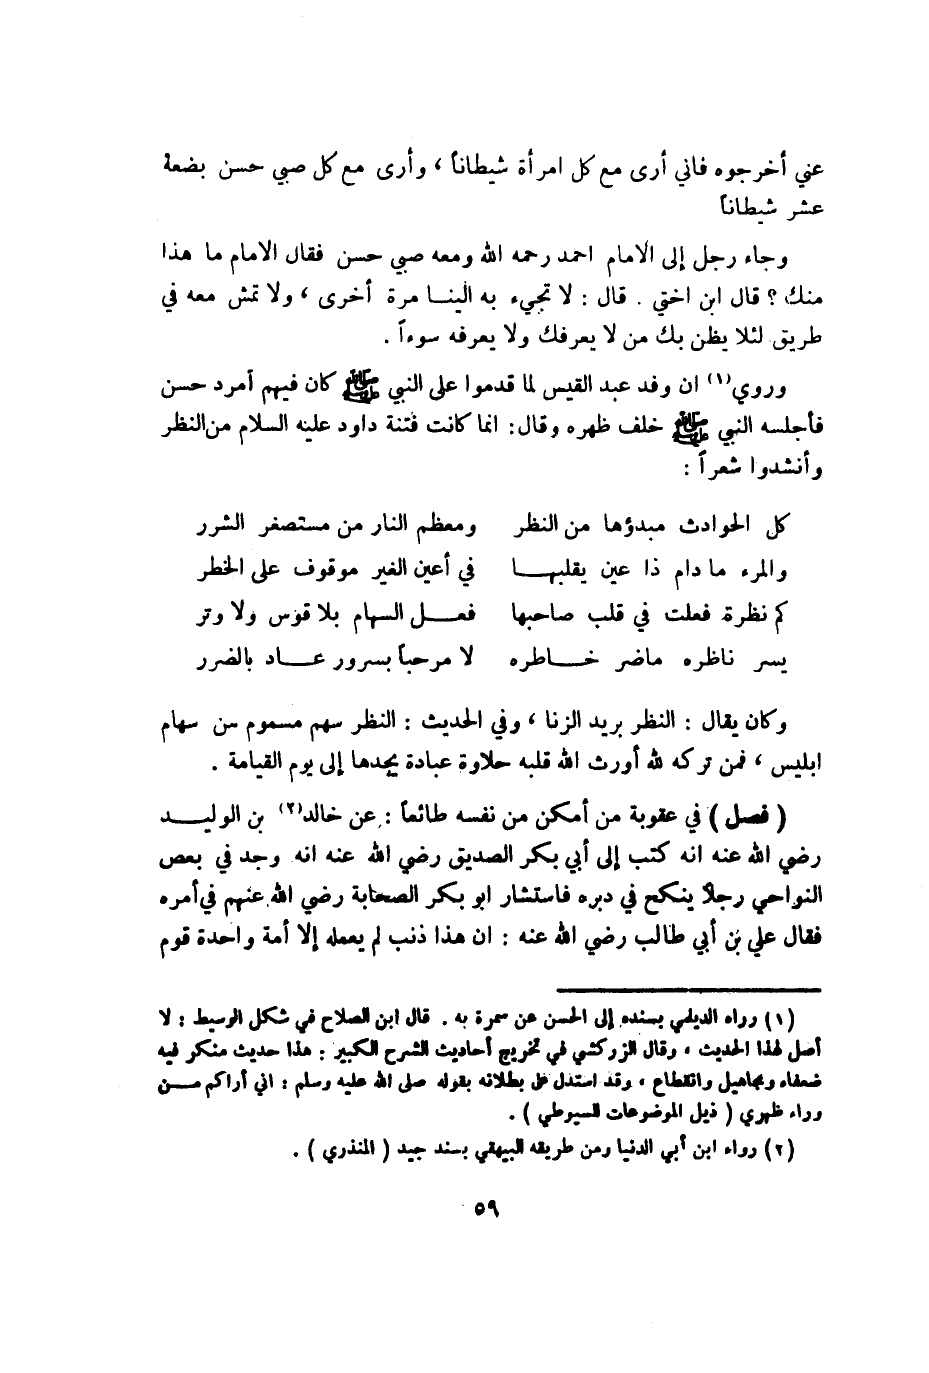 عني أخرجوه فاني أرى مع كل امرأة شيطاناً ، وأرى مع كل صبي حسن بضعة
عشر شيطاناً
وجاء رجل إلى الامام احمد رحمه الله ومعه صبي حسن فقال الامام ما هذا
منك ؟ قال ابن اختي . قال : لا تجيء به الينا مرة أخرى ، ولا تمش معه في
طريق لئلا يظن بك من لا يعرفك ولا يعرفه سوءاً .
وروي(١) ان وفد عبد القيس لما قدموا على النبي ﷺ كان فيهم أمرد حسن
فأجلسه النبي ﷺ خلف ظهره وقال : انما كانت فتنة داود عليه السلام من النظر
وأنشدوا شعراً :
كل الحوادث مبدؤها من النظر ومعظم النار من مستصغر الشرر
والمرء ما دام ذا عين يقلبها في أعين الغير موقوف على الخطر
كم نظرة فعلت في قلب صاحبها فعل السهام بلا قوس ولا وتر
يسر ناظره ماضر خاطره لا مرحباً بسرور عاد بالضرر
وكان يقال : النظر بريد الزنا ، وفي الحديث : النظر سهم مسموم من سهام
ابليس ، فمن تركه لله أورث الله قلبه حلاوة عبادة يجدها إلى يوم القيامة .
( فصل ) في عقوبة من أمكن من نفسه طائعاً : عن خالد(٢) بن الوليد
رضي الله عنه انه كتب إلى أبي بكر الصديق رضي الله عنه انه وجد في بعض
النواحي رجلاً ينكح في دبره فاستشار ابو بكر الصحابة رضي الله عنهم في أمره
فقال علي بن أبي طالب رضي الله عنه : ان هذا ذنب لم يعمله إلا أمة واحدة قوم
(١) رواه الديلمي بسنده إلى الحسن عن سمرة به . قال ابن الصلاح في شكل الوسيط : لا
أصل لهذا الحديث ، وقال الزركشي في تخريج أحاديث الشرح الكبير : هذا حديث منكر فيه
ضعفاء ومجاهيل وانقطاع ، وقد استدل على بطلانه بقوله صلى الله عليه وسلم : اني أراكم من
وراء ظهري ( ذيل الموضوعات للسيوطي ) .
(٢) رواه ابن أبي الدنيا ومن طريقه البيهقي بسند جيد ( المنذري ) .
٥٩